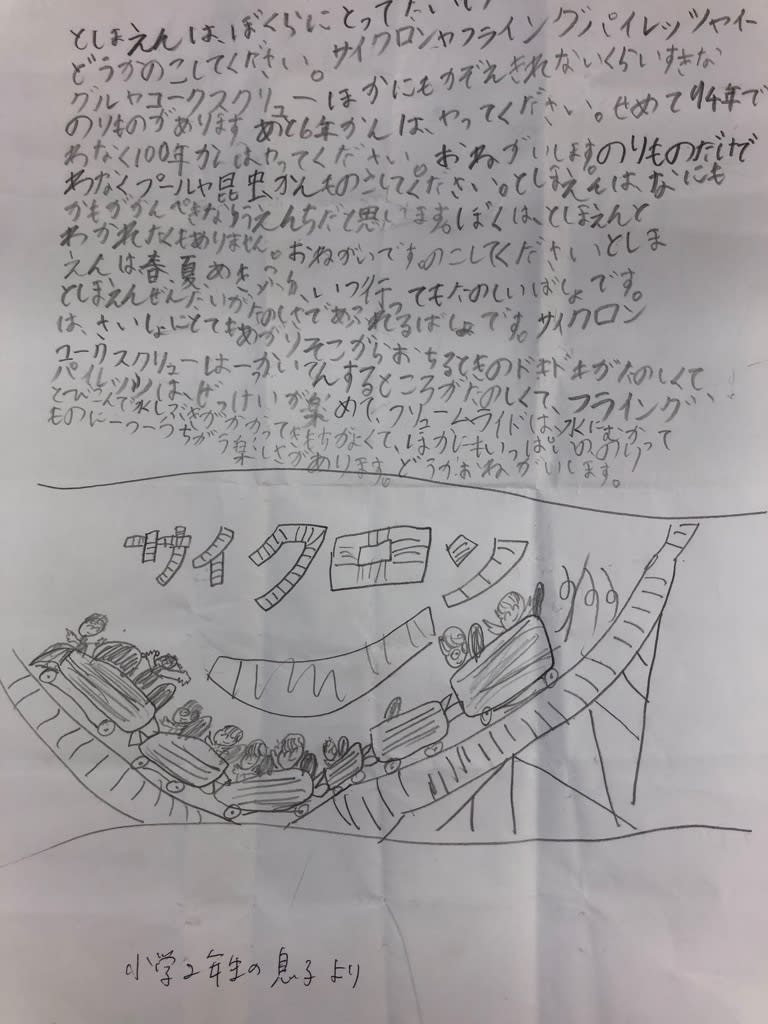 としまえんは、ぼくらにとってたいい
どうかのこしてください。サイクロンやフライングパイレッツやイー
グルやコークスクリューほかにもかぞえきれないくらいすきな
のりものがあります あと6年かんは、やってください。せめて94年で
わなく100年かんはやってください。おねがいしますのりものだけで
わなくプールや昆虫かんものこしてください。としまえんは、なにも
かもがかんぺきなゆうえんちだと思います。ぼくは、としまえんと
わかれたくもありません。おねがいです。のこしてくださいとしま
えんは春、夏、あき、ふゆ、いつ行ってもたのしいばしょです。
としまえんぜんたいがたのしさであふれるばしょです。サイクロン
は、さいしょにとてもあがりそこからおちるときのドキドキがたのしくて
コークスクリューは一っかいてんするところがたのしくて、フライング
パイレッツは、ぜっけいが楽めて、フリュームライドは、水にむかって
とびこんで水しぶきがかかってきもちがよくて、ほかにもいっぱいののり
ものに一つ一つちがう楽しさがあります。どうかおねがいします。
サイクロン
小学2年生の息子より